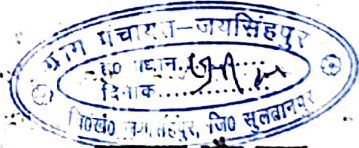 ग्राम पंचायत-जयसिंहपुर
ह० प्रधान..........
दिनांक..........
वि०खं० जयसिंहपुर, जि० सुलतानपुर